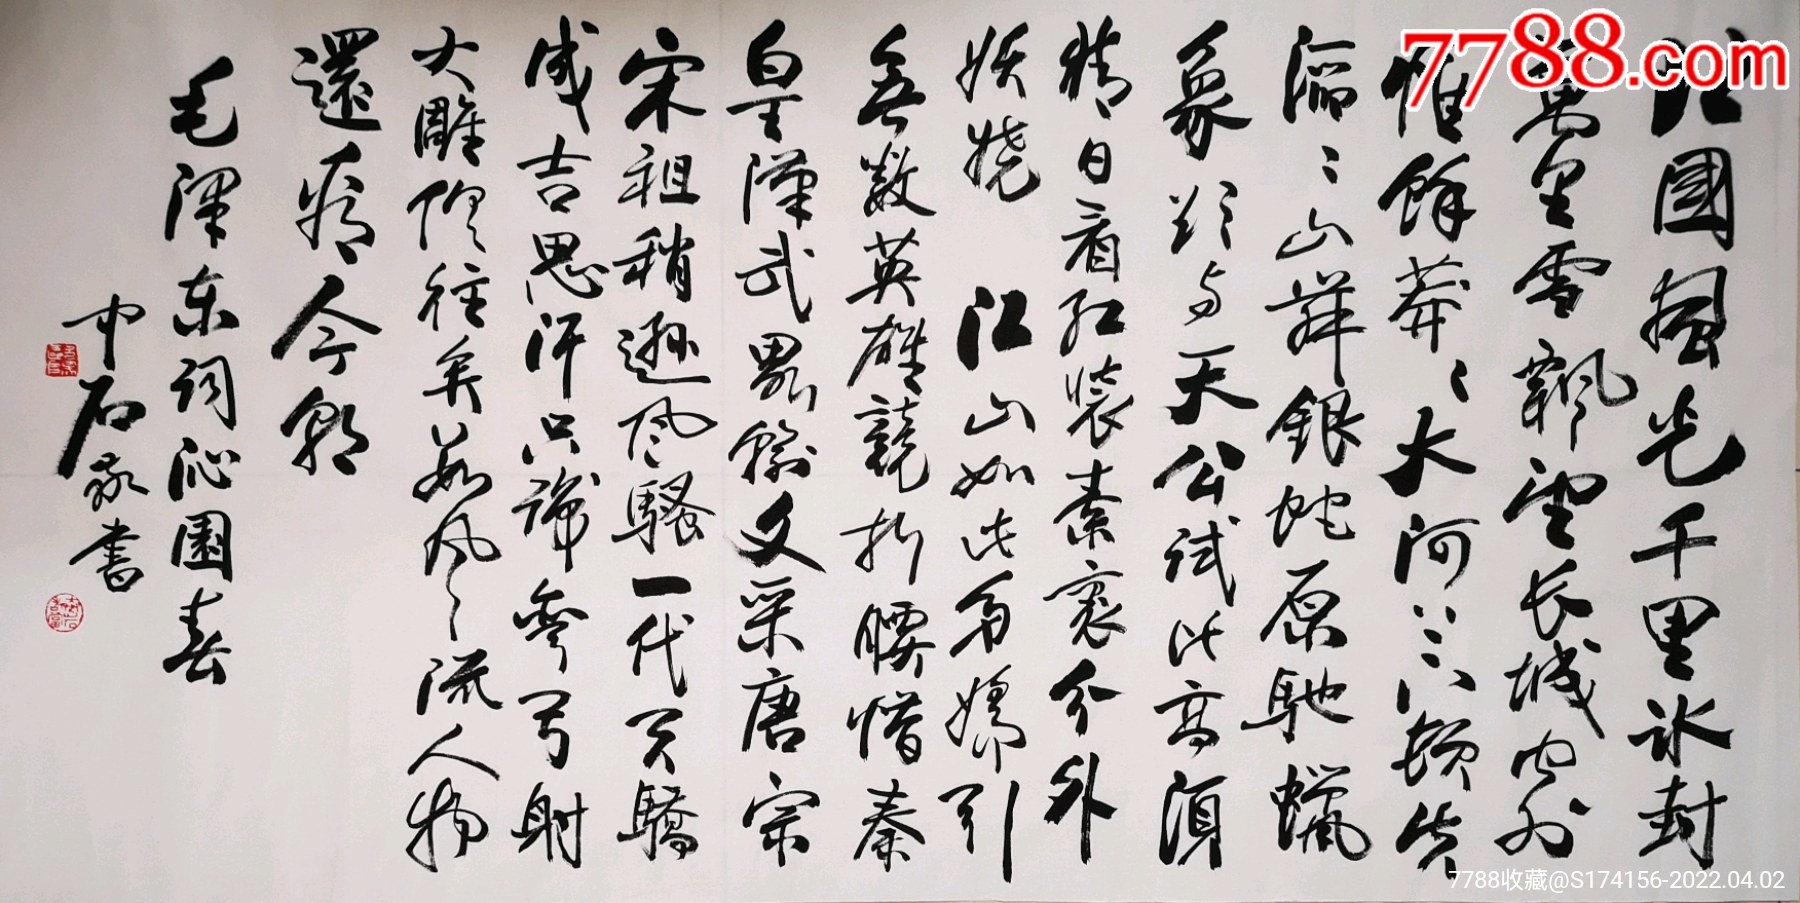 北國風光千里冰封
萬里雪飄望长城内外
惟餘莽〻大河上下頓失
滔〻山舞銀蛇原馳蠟
象欲与天公試比高須
晴日看红裝素裹分外
妖娆 江山如此多嬌引
無数英雄競折腰惜秦
皇漢武略輸文采唐宗
宋祖稍遜风騷一代天驕
成吉思汗只識彎弓射
大雕俱往矣数风流人物
還看今朝
毛澤东詞沁園春
中石敬書
7788.com
7788收藏@S174156-2022.04.02